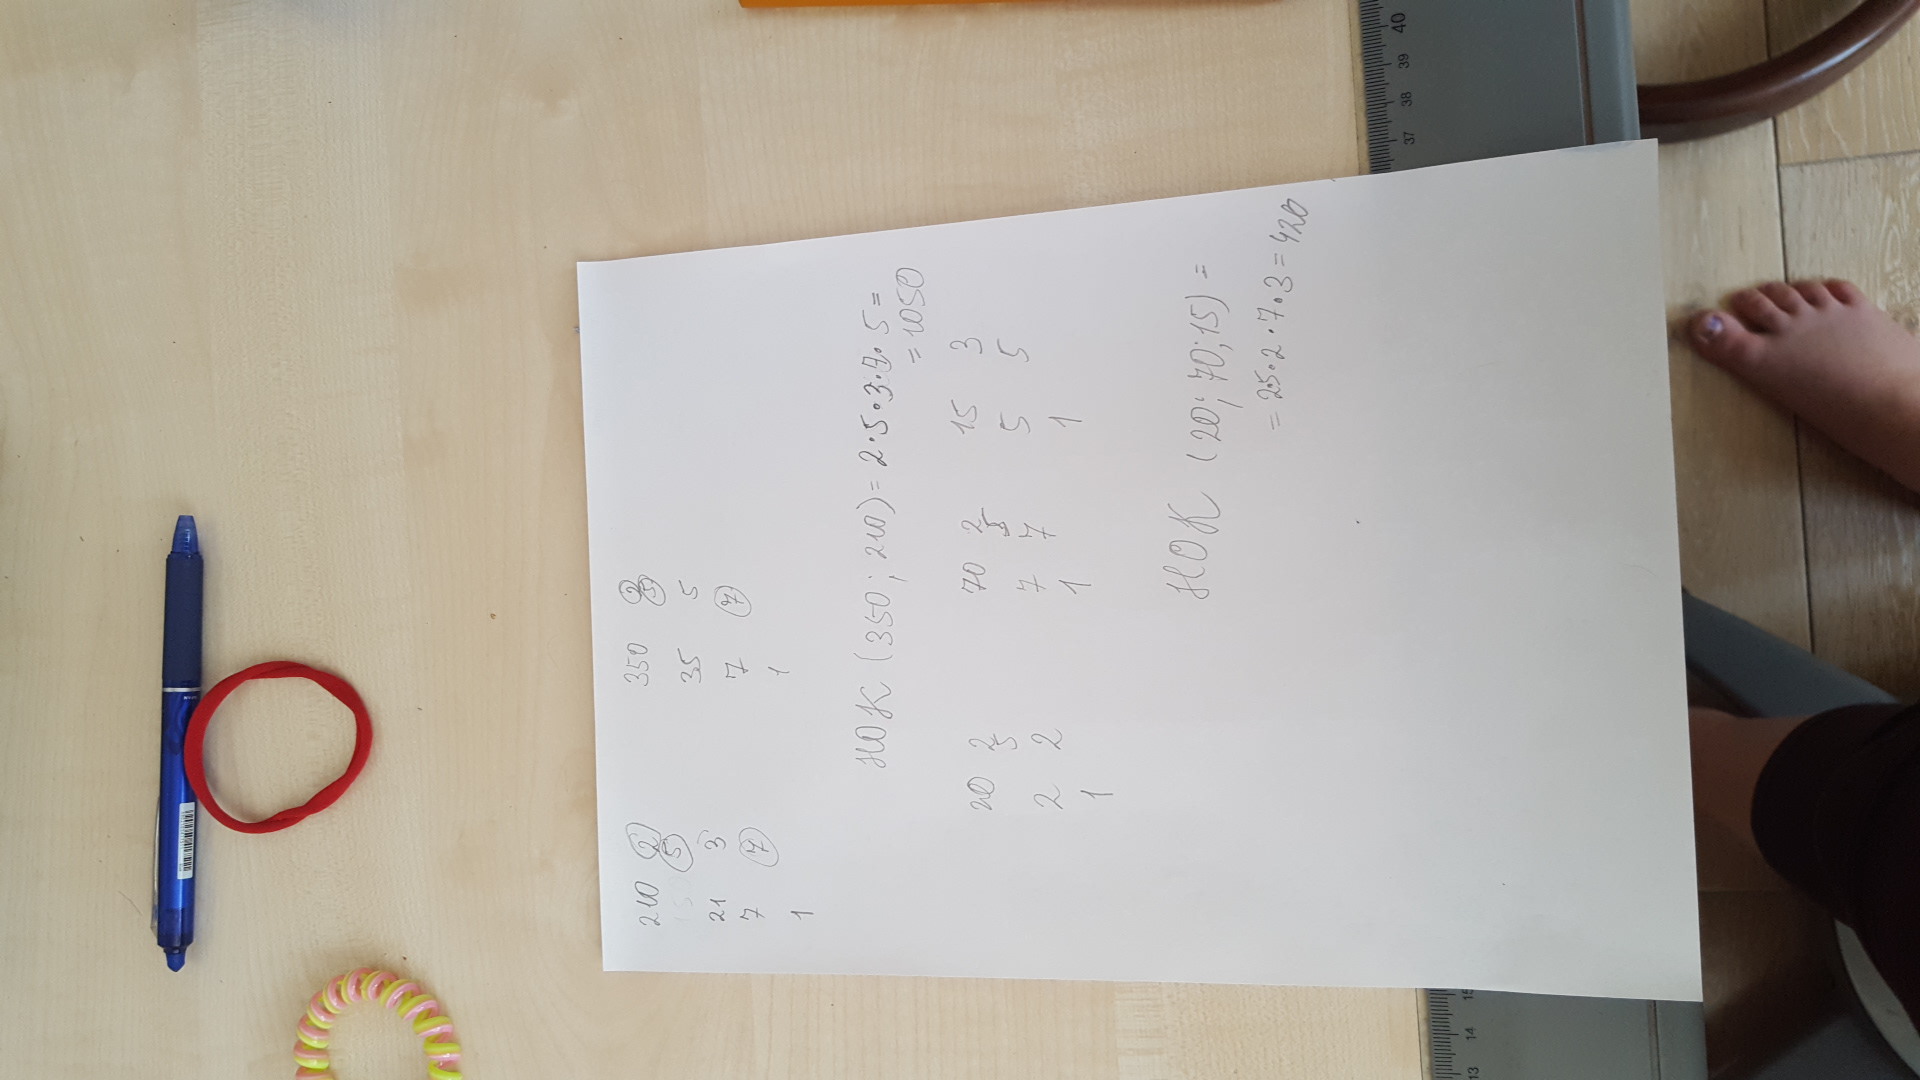 210 2 350 2
5 5
21 3 35 5
7 7 7 7
1 1
НОК (350; 210) = 2·5·3·7·5 =
= 1050
20 2 70 2 15 3
5 5 5 5
2 2 7 7 1
1 1
НОК (20; 70; 15) =
= 25·2·7·3 = 420
40
39
38
37
15
14
13